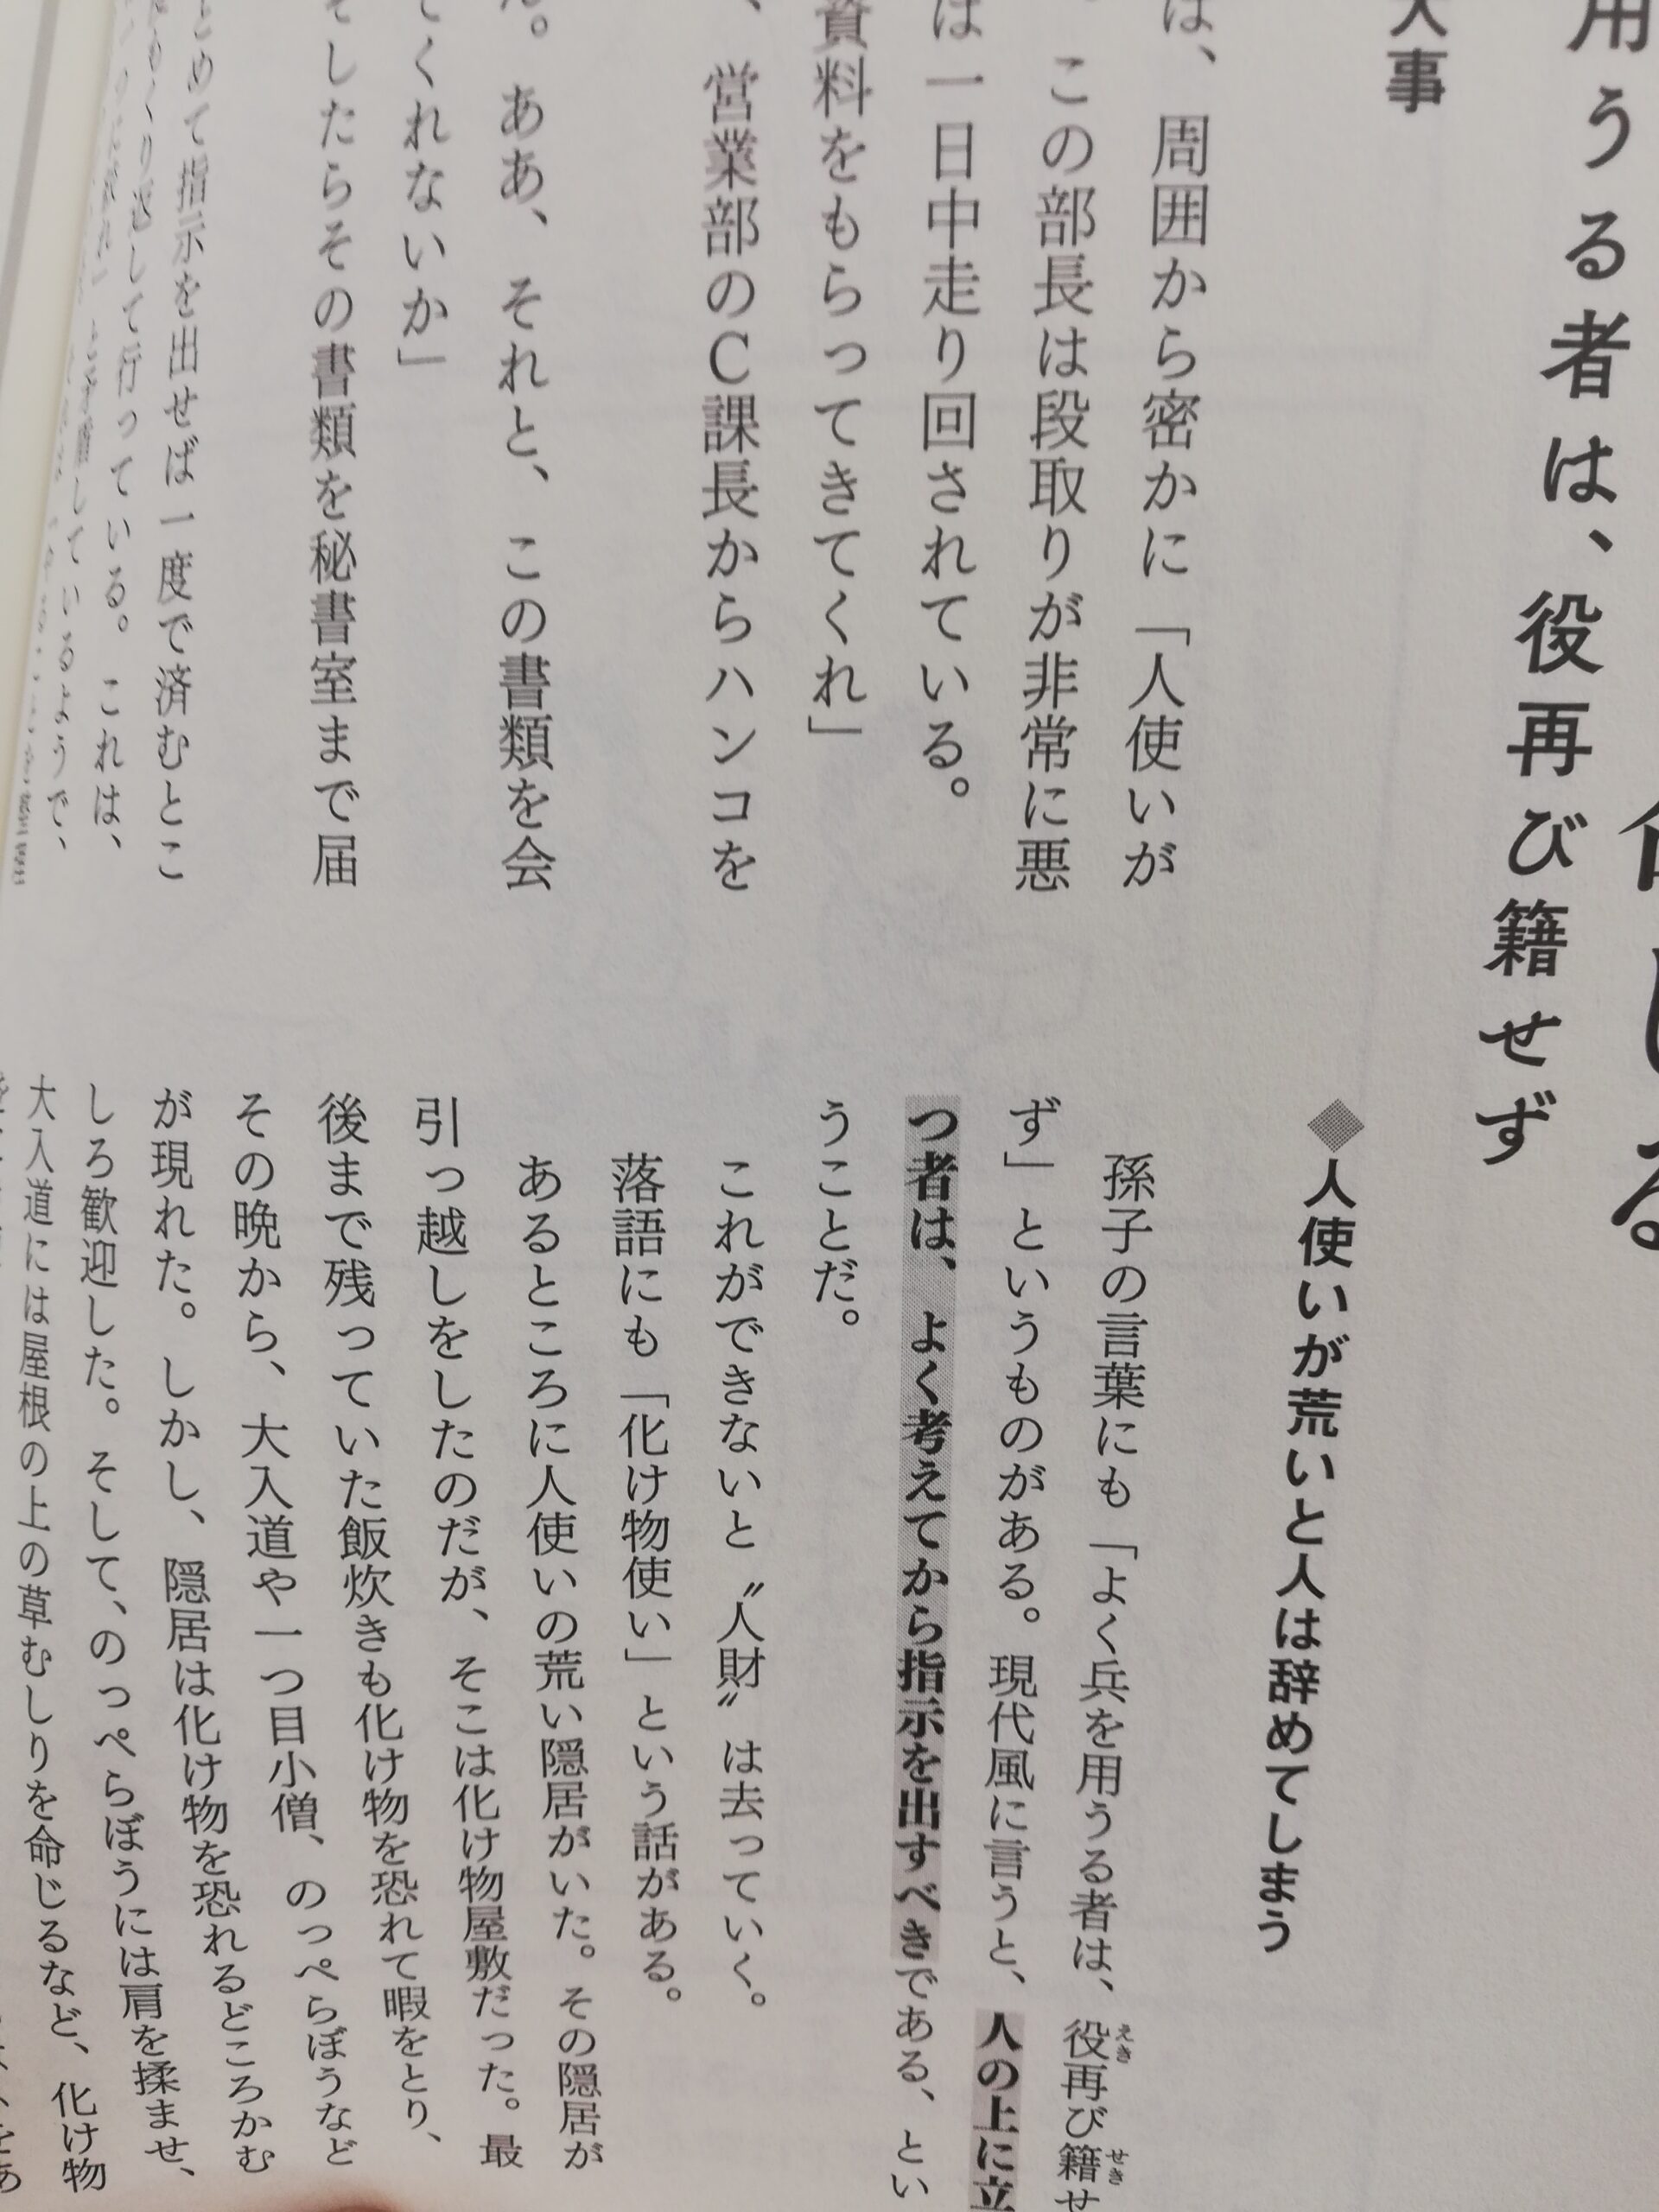 用うる者は、役再び籍せず
大事
は、周囲から密かに「人使いが
この部長は段取りが非常に悪
は一日中走り回されている。
資料をもらってきてくれ」
、営業部のC課長からハンコを
ん。ああ、それと、この書類を会
てくれないか」
そしたらその書類を秘書室まで届
とめて指示を出せば一度で済むとこ
り返して行っている。これは、
しているようで、
◆人使いが荒いと人は辞めてしまう
孫子の言葉にも「よく兵を用うる者は、役再び籍せ
えき せき
ず」というものがある。現代風に言うと、人の上に立
つ者は、よく考えてから指示を出すべきである、とい
うことだ。
これができないと〝人財〟は去っていく。
落語にも「化け物使い」という話がある。
あるところに人使いの荒い隠居がいた。その隠居が
引っ越しをしたのだが、そこは化け物屋敷だった。最
後まで残っていた飯炊きも化け物を恐れて暇をとり、
その晩から、大入道や一つ目小僧、のっぺらぼうなど
が現れた。しかし、隠居は化け物を恐れるどころかむ
しろ歓迎した。そして、のっぺらぼうには肩を揉ませ、
大入道には屋根の上の草むしりを命じるなど、化け物